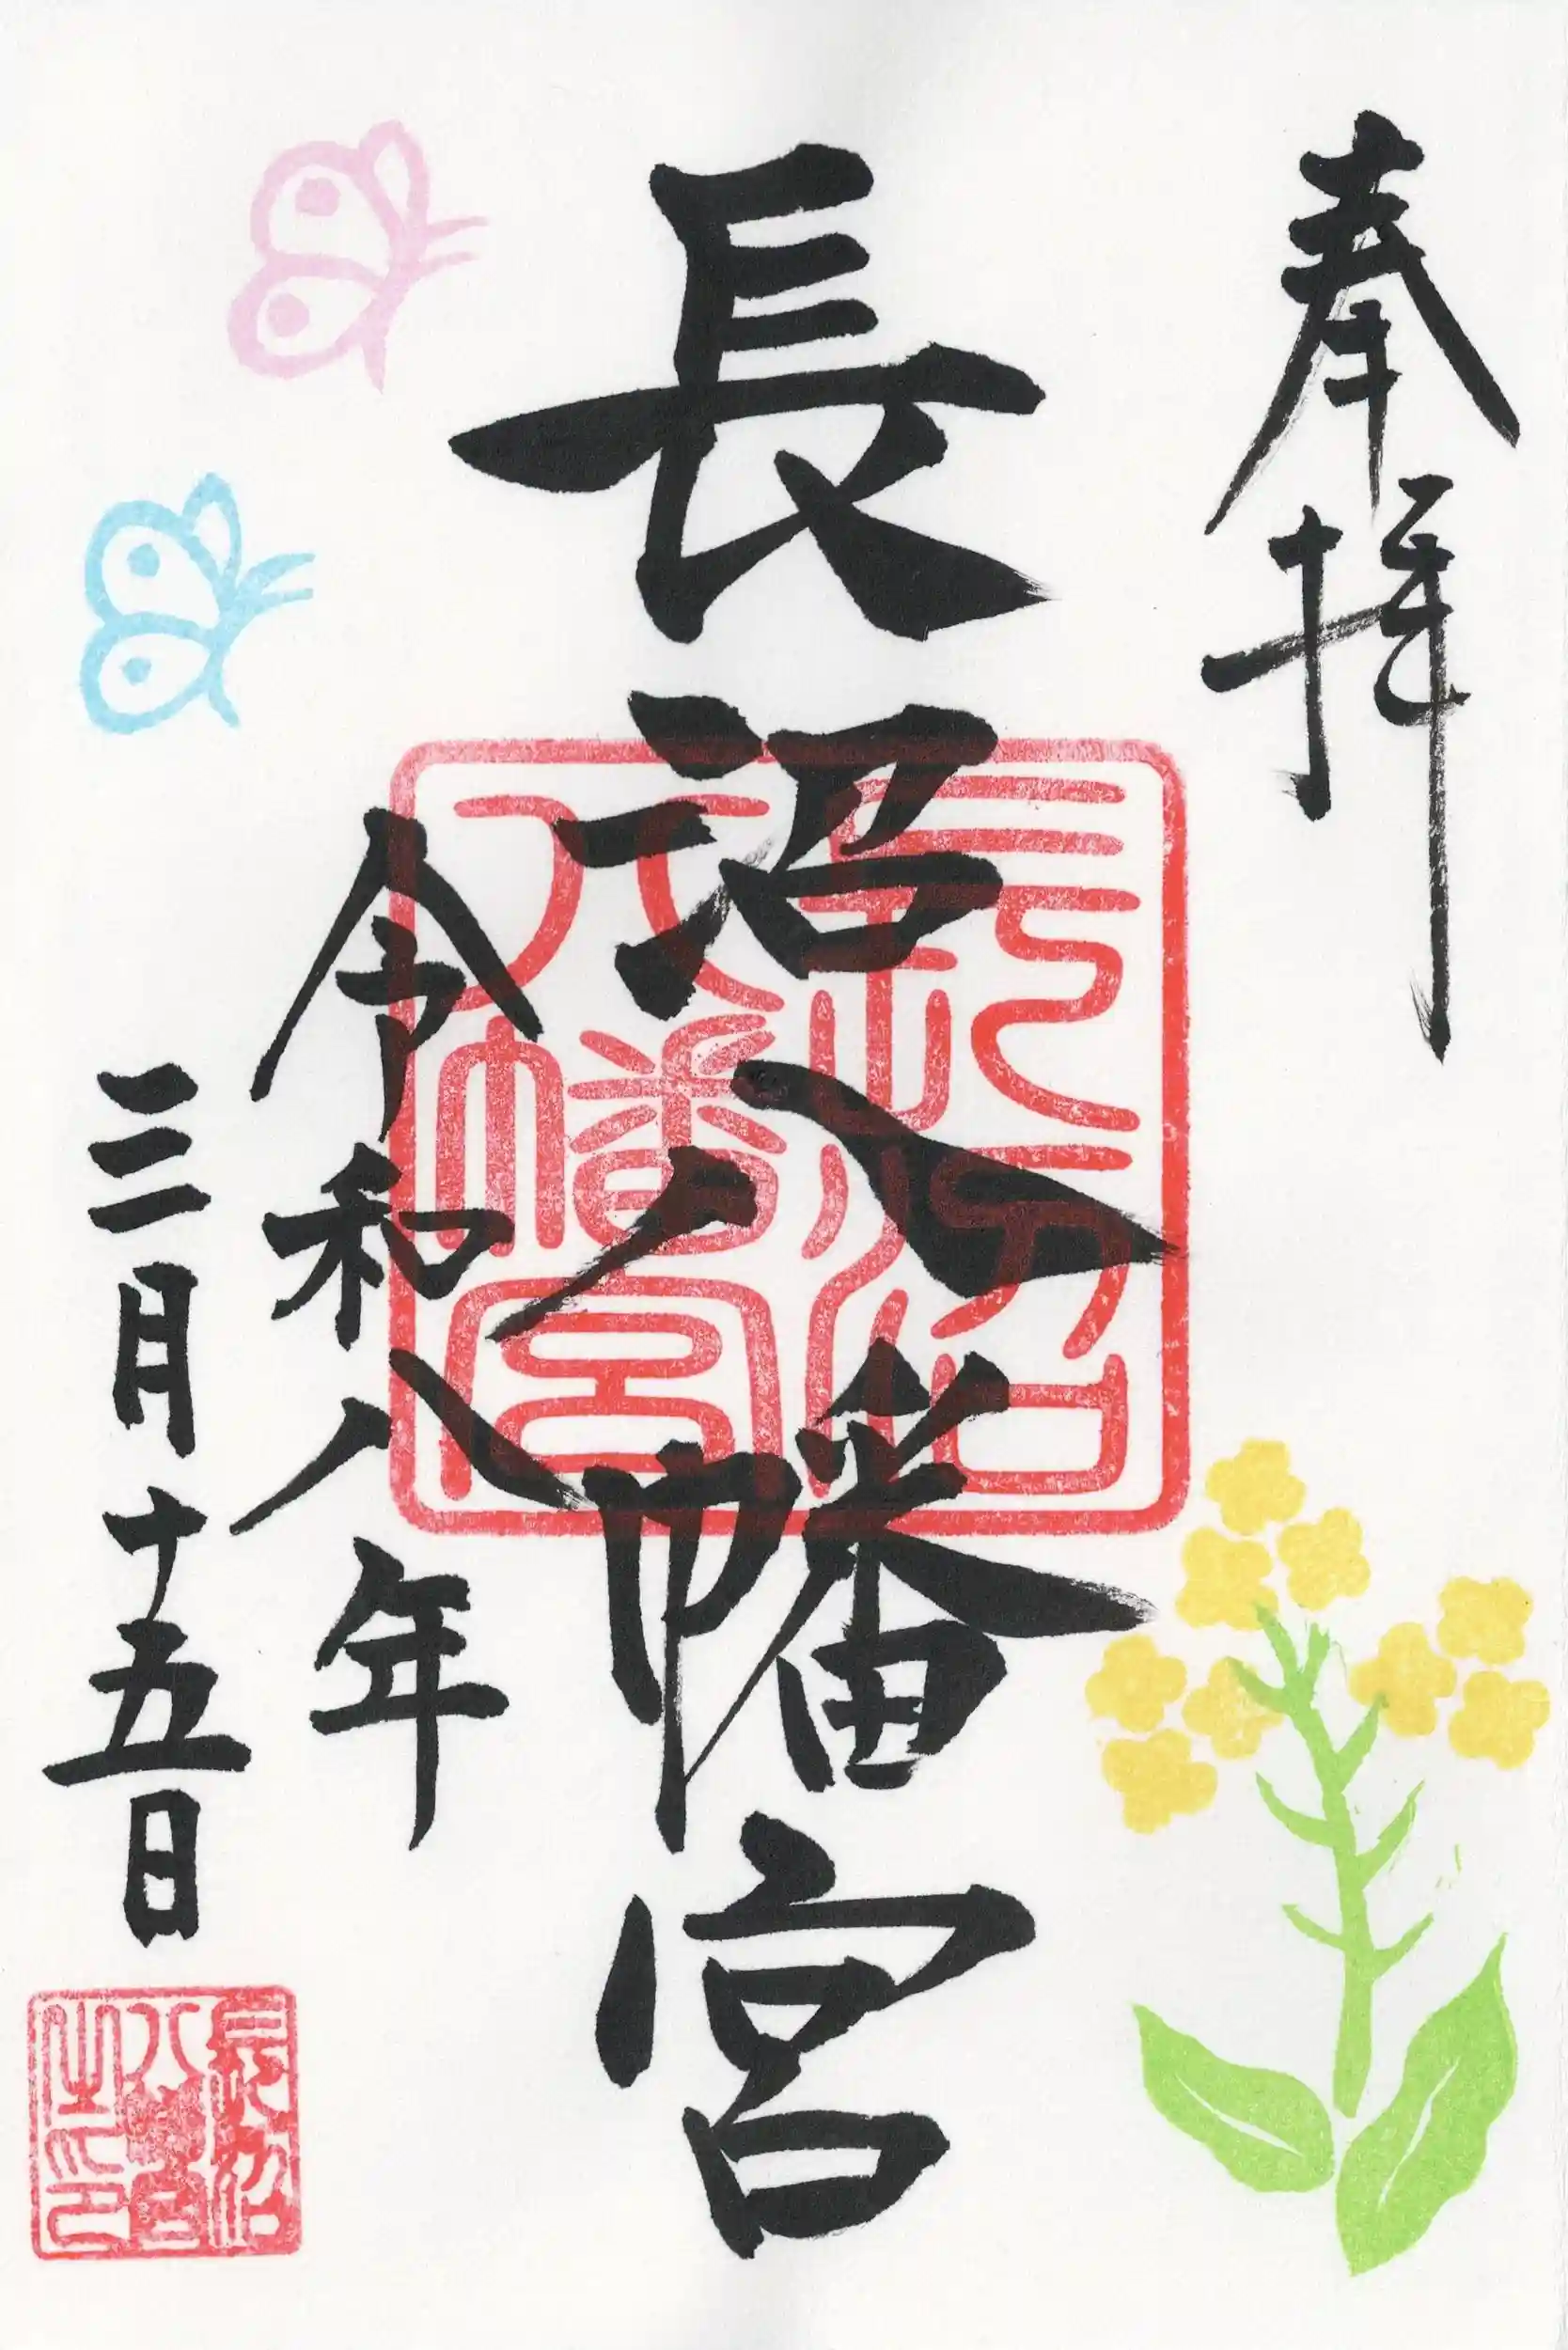 奉拝
長沼八幡宮
長沼八幡宮
令和八年
三月十五日
長沼八幡宮之印